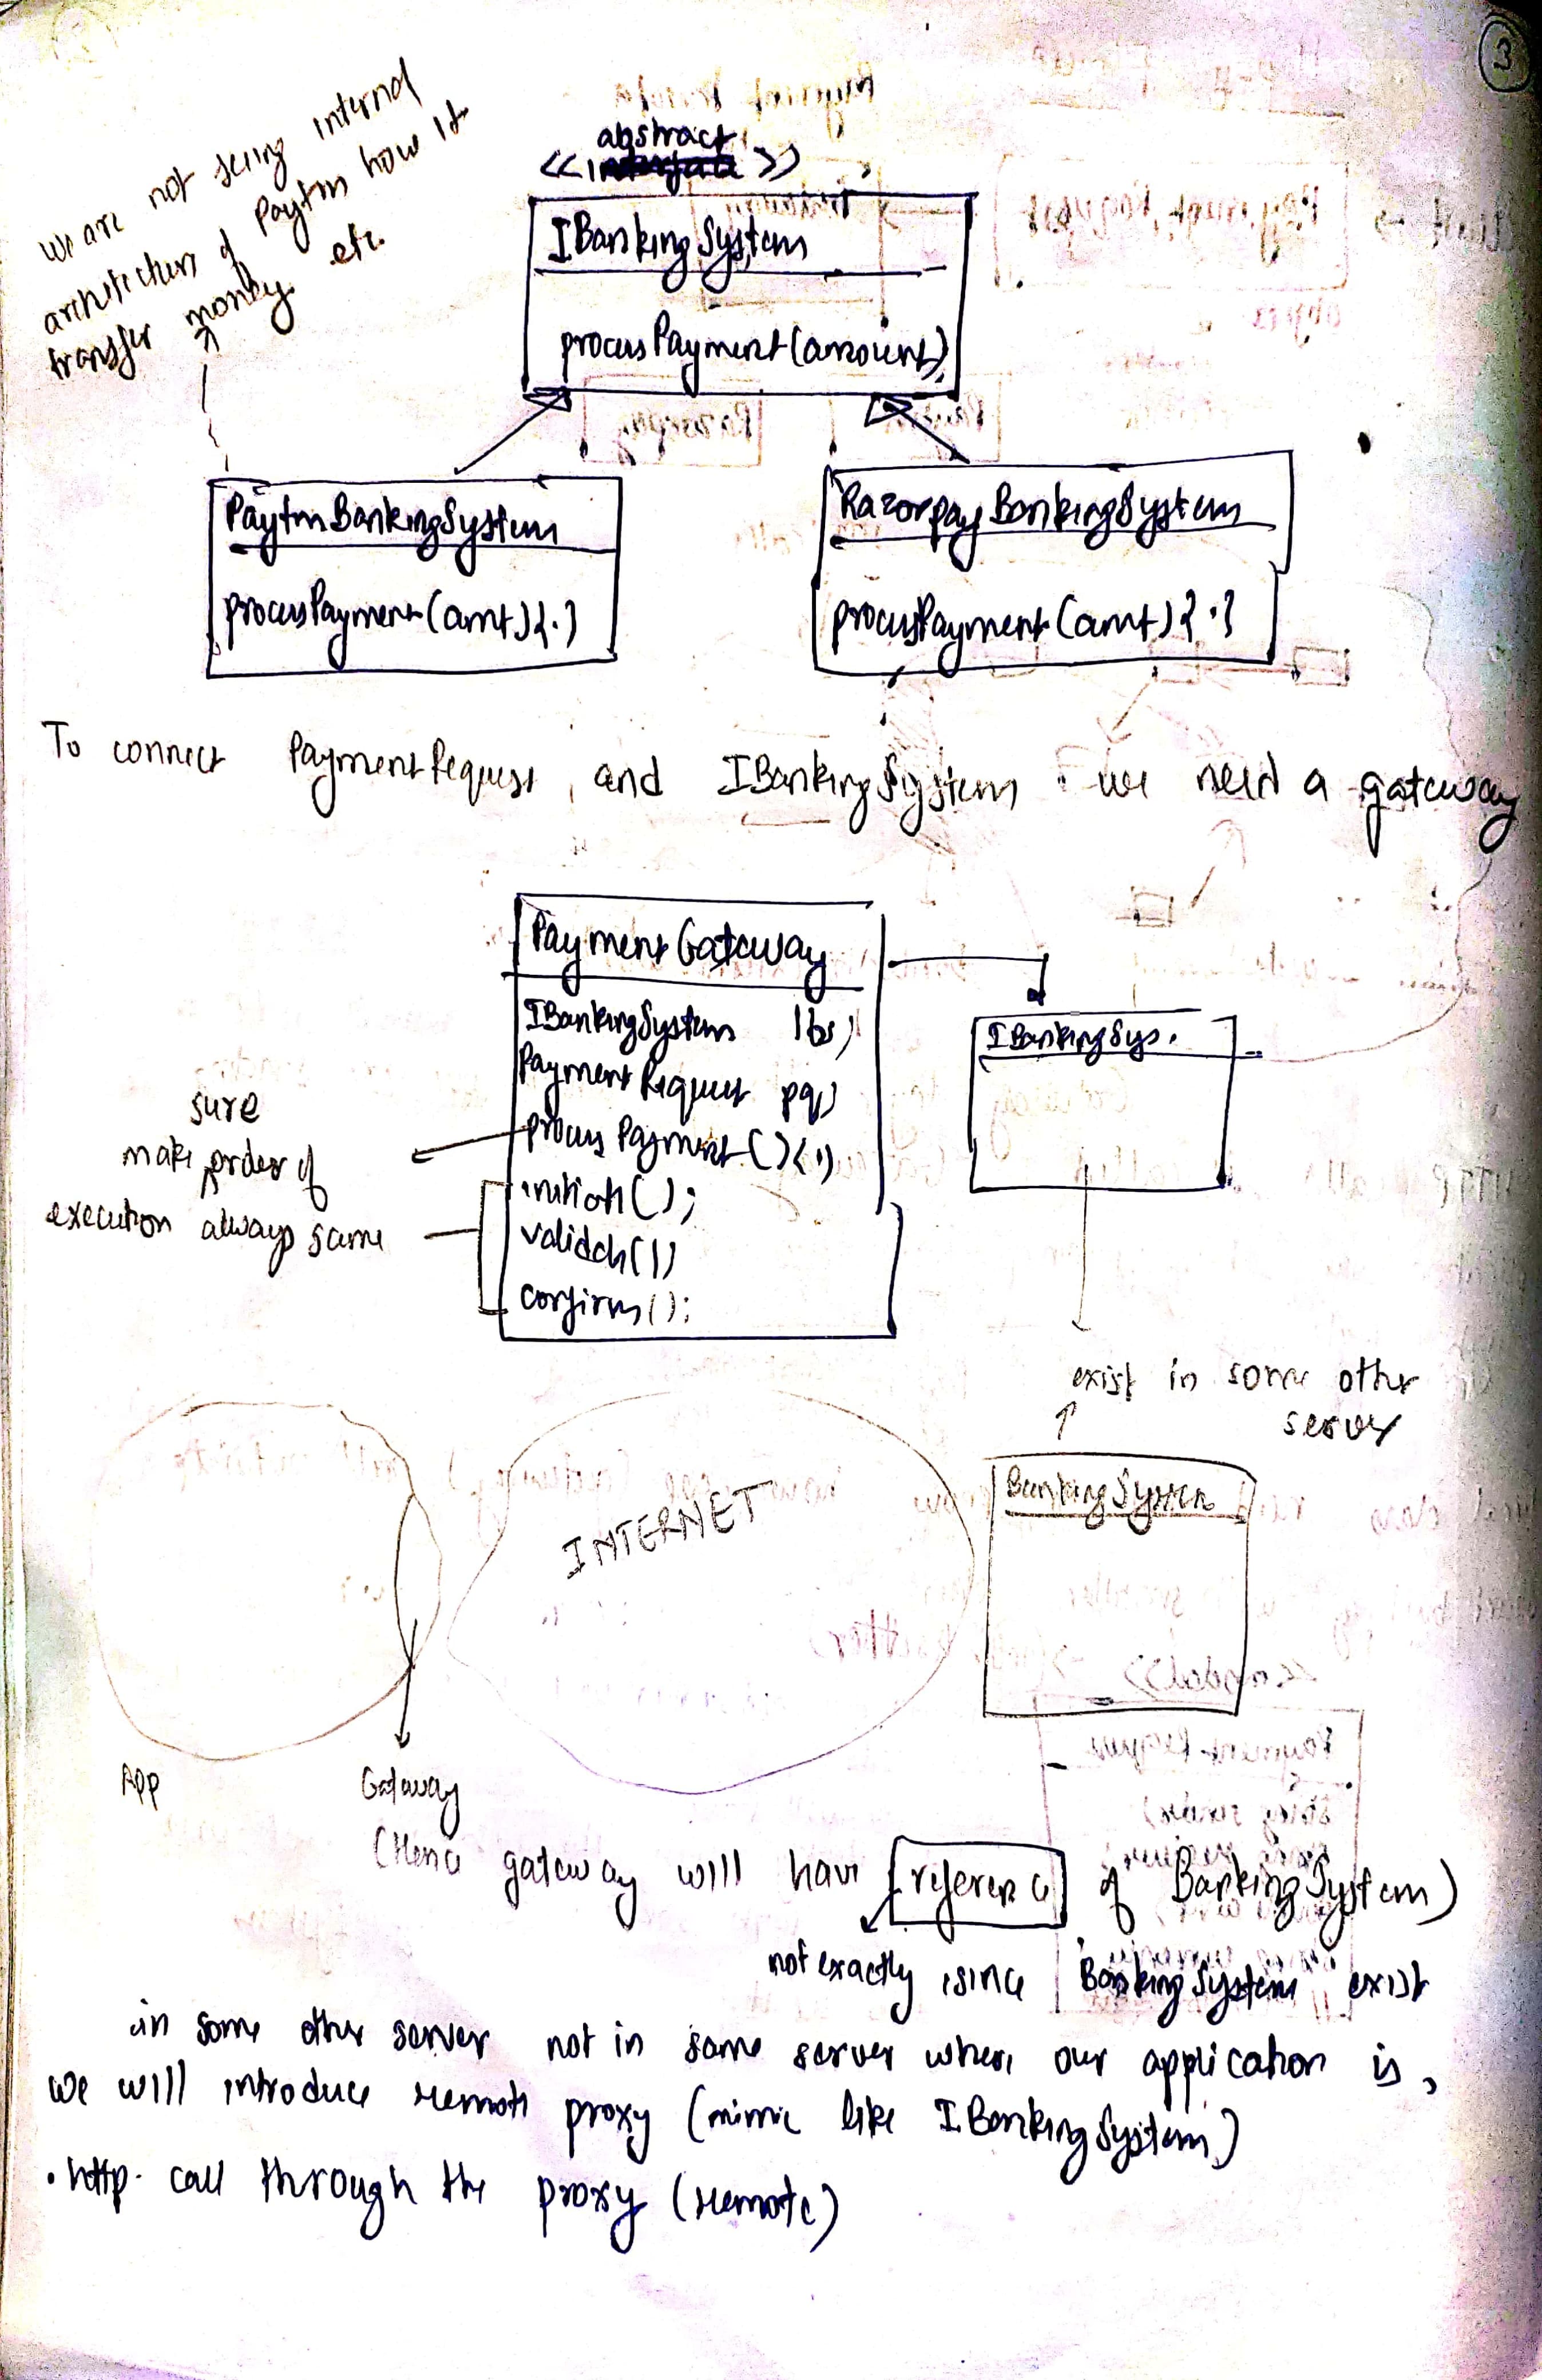 3
we are not seing internal
architecture of Paytm how it
transfer money etc.
abstract
<<interface>>
IBankingSystem
processPayment(amount);
PaytmBankingSystem
processPayment(amt){.}
RazorpayBankingSystem
processPayment(amt){.}
To connect PaymentRequest, and IBankingSystem we need a gateway
PaymentGateway
IBankingSystem ibs;
PaymentRequest pq;
process Payment(){.}
initiate();
validate();
confirm();
sure
make order of
execution always same
IBankingSys.
exist in some other
server
INTERNET
BankingSystem
App
Gateway
(Hence gateway will have reference of BankingSystem)
not exactly, since BankingSystem exist
in some other server not in same server where our application is,
we will introduce remote proxy (mimic like IBankingSystem)
• http call through the proxy (remote)